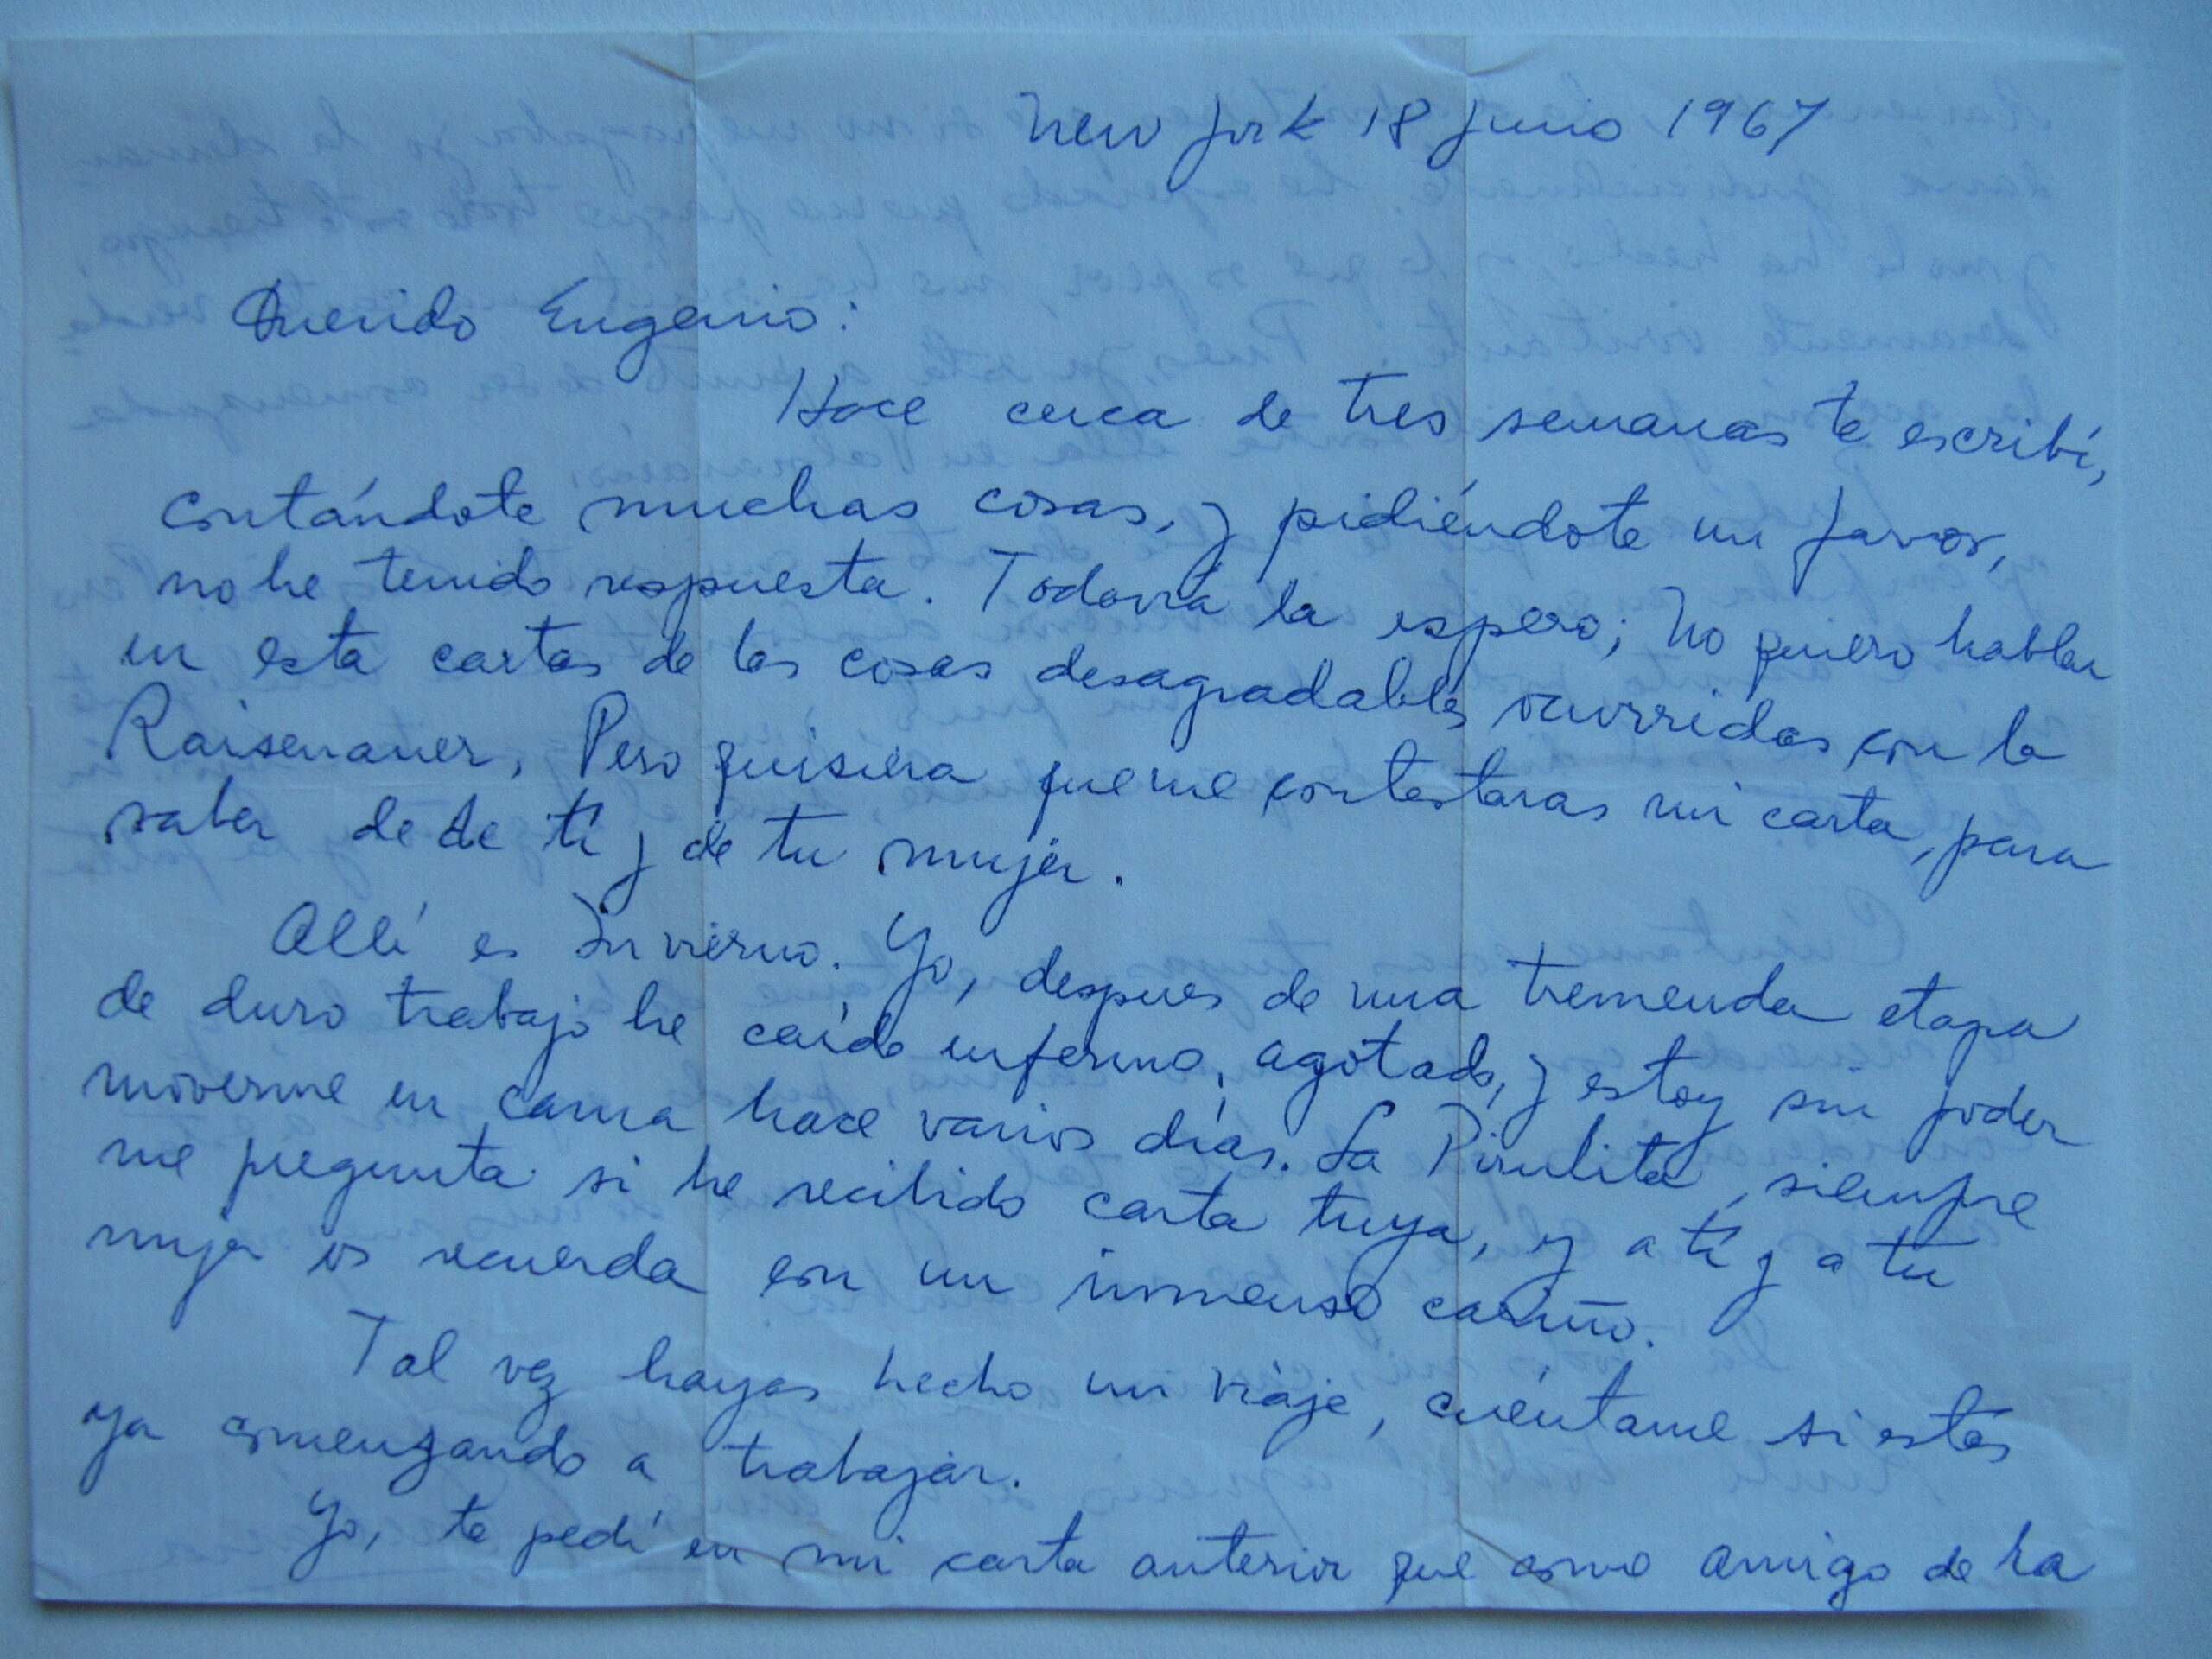 New York 18 Junio 1967
Querido Eugenio:
Hace cerca de tres semanas te escribí,
contándote muchas cosas, y pidiéndote un favor,
no he tenido respuesta. Todavía la espero; No quiero hablar
en esta cartas de las cosas desagradables ocurridas con la
Raisenauer, Pero quisiera que me contestaras mi carta, para
saber de de tí y de tu mujer.
Allí es Invierno. Yo, despues de una tremenda etapa
de duro trabajo he caído enfermo, agotado, y estoy sin poder
moverme en cama hace varios días. La Pirulita, siempre
me pregunta si he recibido carta tuya, y a tí y a tu
mujer os recuerda con un inmenso cariño.
Tal vez hayas hecho un viaje, cuéntame si estás
ya comenzando a trabajar.
Yo, te pedí en mi carta anterior que como amigo de la